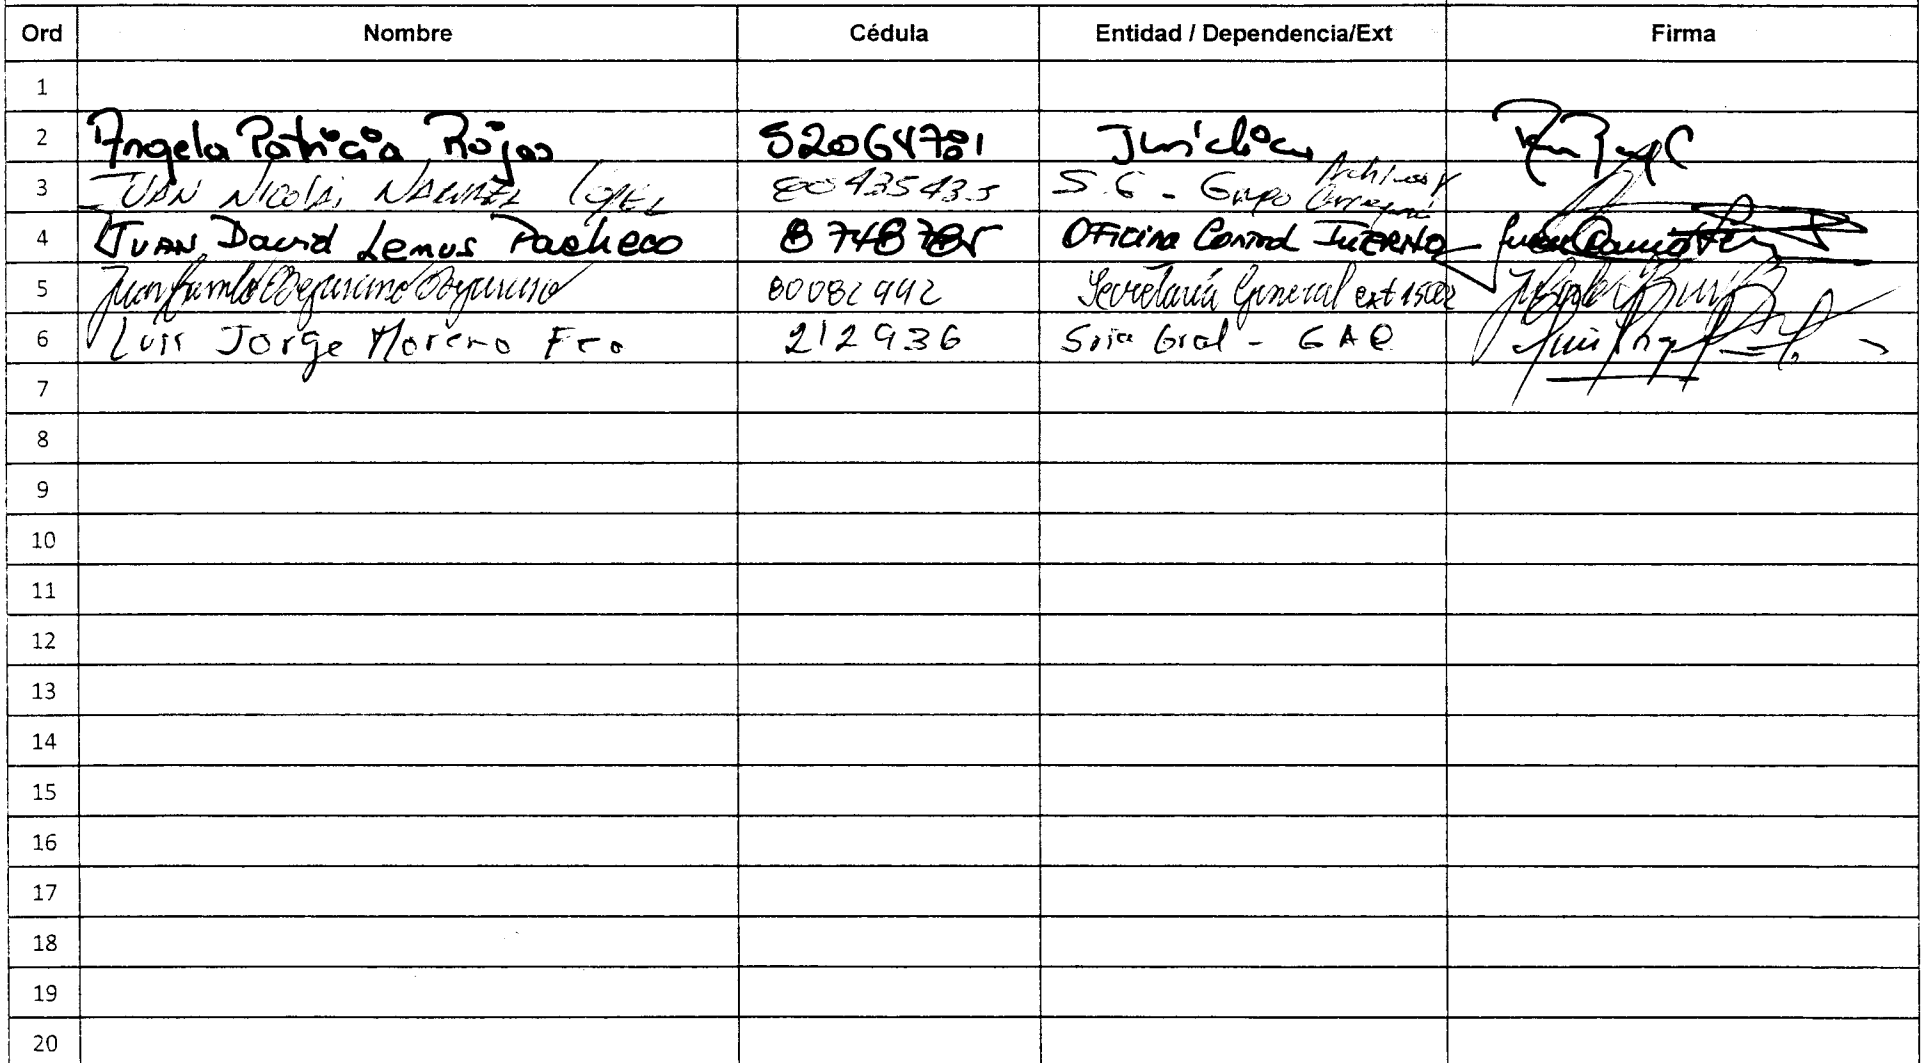 Ord Nombre Cédula Entidad / Dependencia/Ext Firma
1
2 Angela Patricia Rojas 52064781 Juridica
3 JUAN Nicolás NARVAEZ López 80435435 S.G - Grupo Archivo y
4 JUAN David Lemus Pacheco 8748785 OFicina Control INTERNO
5 80082992 Secretaría General ext 1502
6 Luis Jorge Moreno Fco 212936 Sria Gral - GAC
7
8
9
10
11
12
13
14
15
16
17
18
19
20